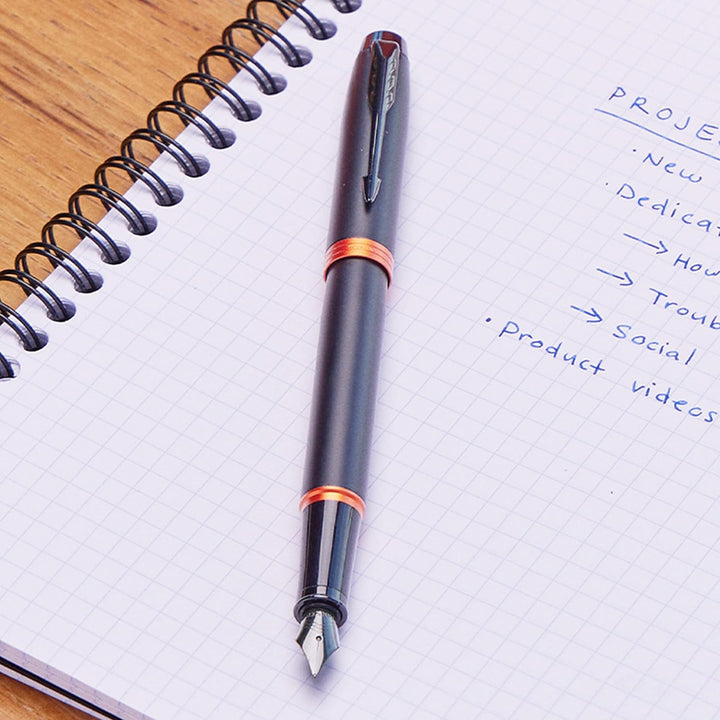 PROJEC
· New
· Dedicat
→ How
→ Troub
→ Social
· Product videos